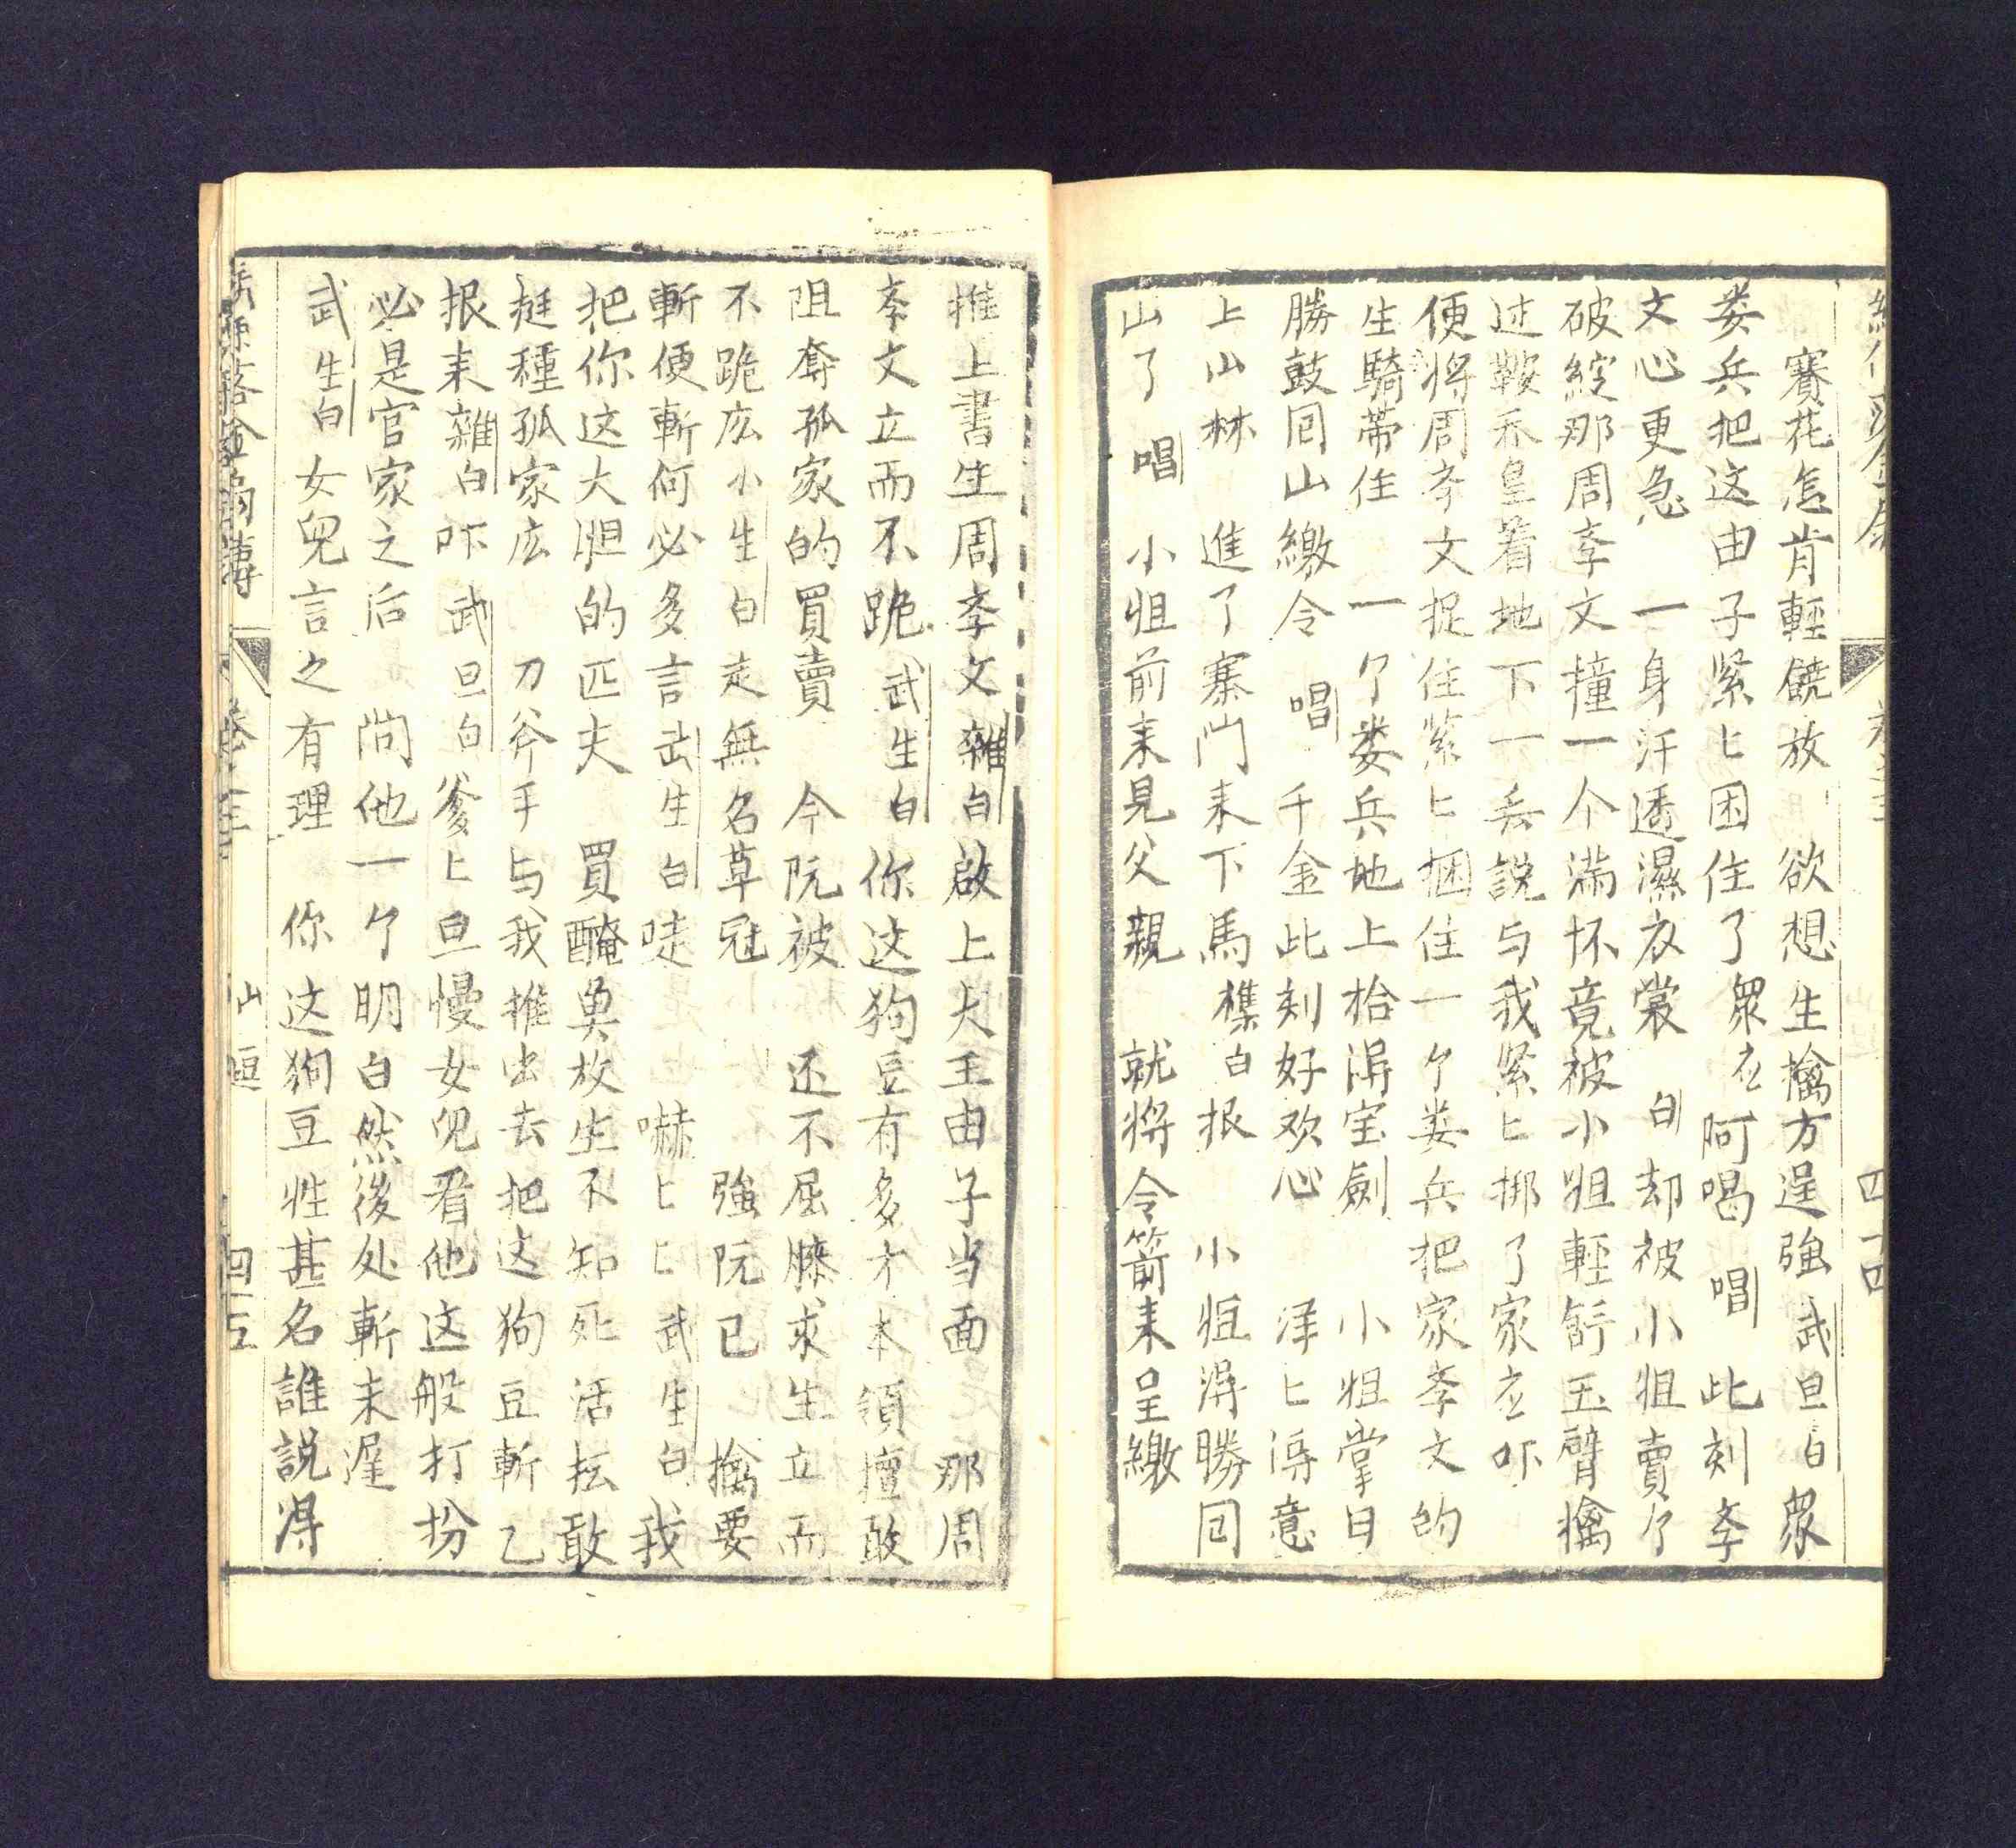 賽花怎肯輕饒放 欲想生擒方逞強 武旦白 眾
娄兵把这由子緊匕困住了 眾在 阿喝 唱 此刻孝
文心更急 一身汗透濕衣裳 白 却被小姐賣个
破綻那周孝文撞一个滿怀竟被小姐輕舒玉臂擒
过鞍禾皇着地下一丢説与我紧匕挷了家在吓
便将周孝文捉住紧匕捆住一个娄兵把家孝文的
生騎帶住 一个娄兵地上拾淂宝劍 小姐掌日
勝鼓囘山繳令 唱 千金此刻好欢心 洋匕淂意
上山林 進了寨门耒下馬 襍白 报 小姐淂勝囘
山了 唱 小姐前耒見父親 就将令箭耒呈繳
推上書生周孝文 雜白 啟上大王由子当面 那周
孝文立而不跪 武生白 你这狗豆有多才本領擅敢
阻奪孤家的買賣 今阮被 还不屈膝求生立而
不跪広 小生白 走無名草冠 強阮已 擒要
斬便斬何必多言 武生白 唗 嚇匕匕 武生白 我
把你这大胆的匹夫 買醃奠放生不知死活抎敢
挺種孤家広 刀斧手与我推出去把这狗豆斬乙
报耒 雜白 吓 武旦白 爹匕旦慢女兒看他这般打扮
必是官家之后 问他一个明白然後处斬未遲
武生白 女兒言之有理 你这狗豆性甚名誰説淂
卷三
四十五
四十四